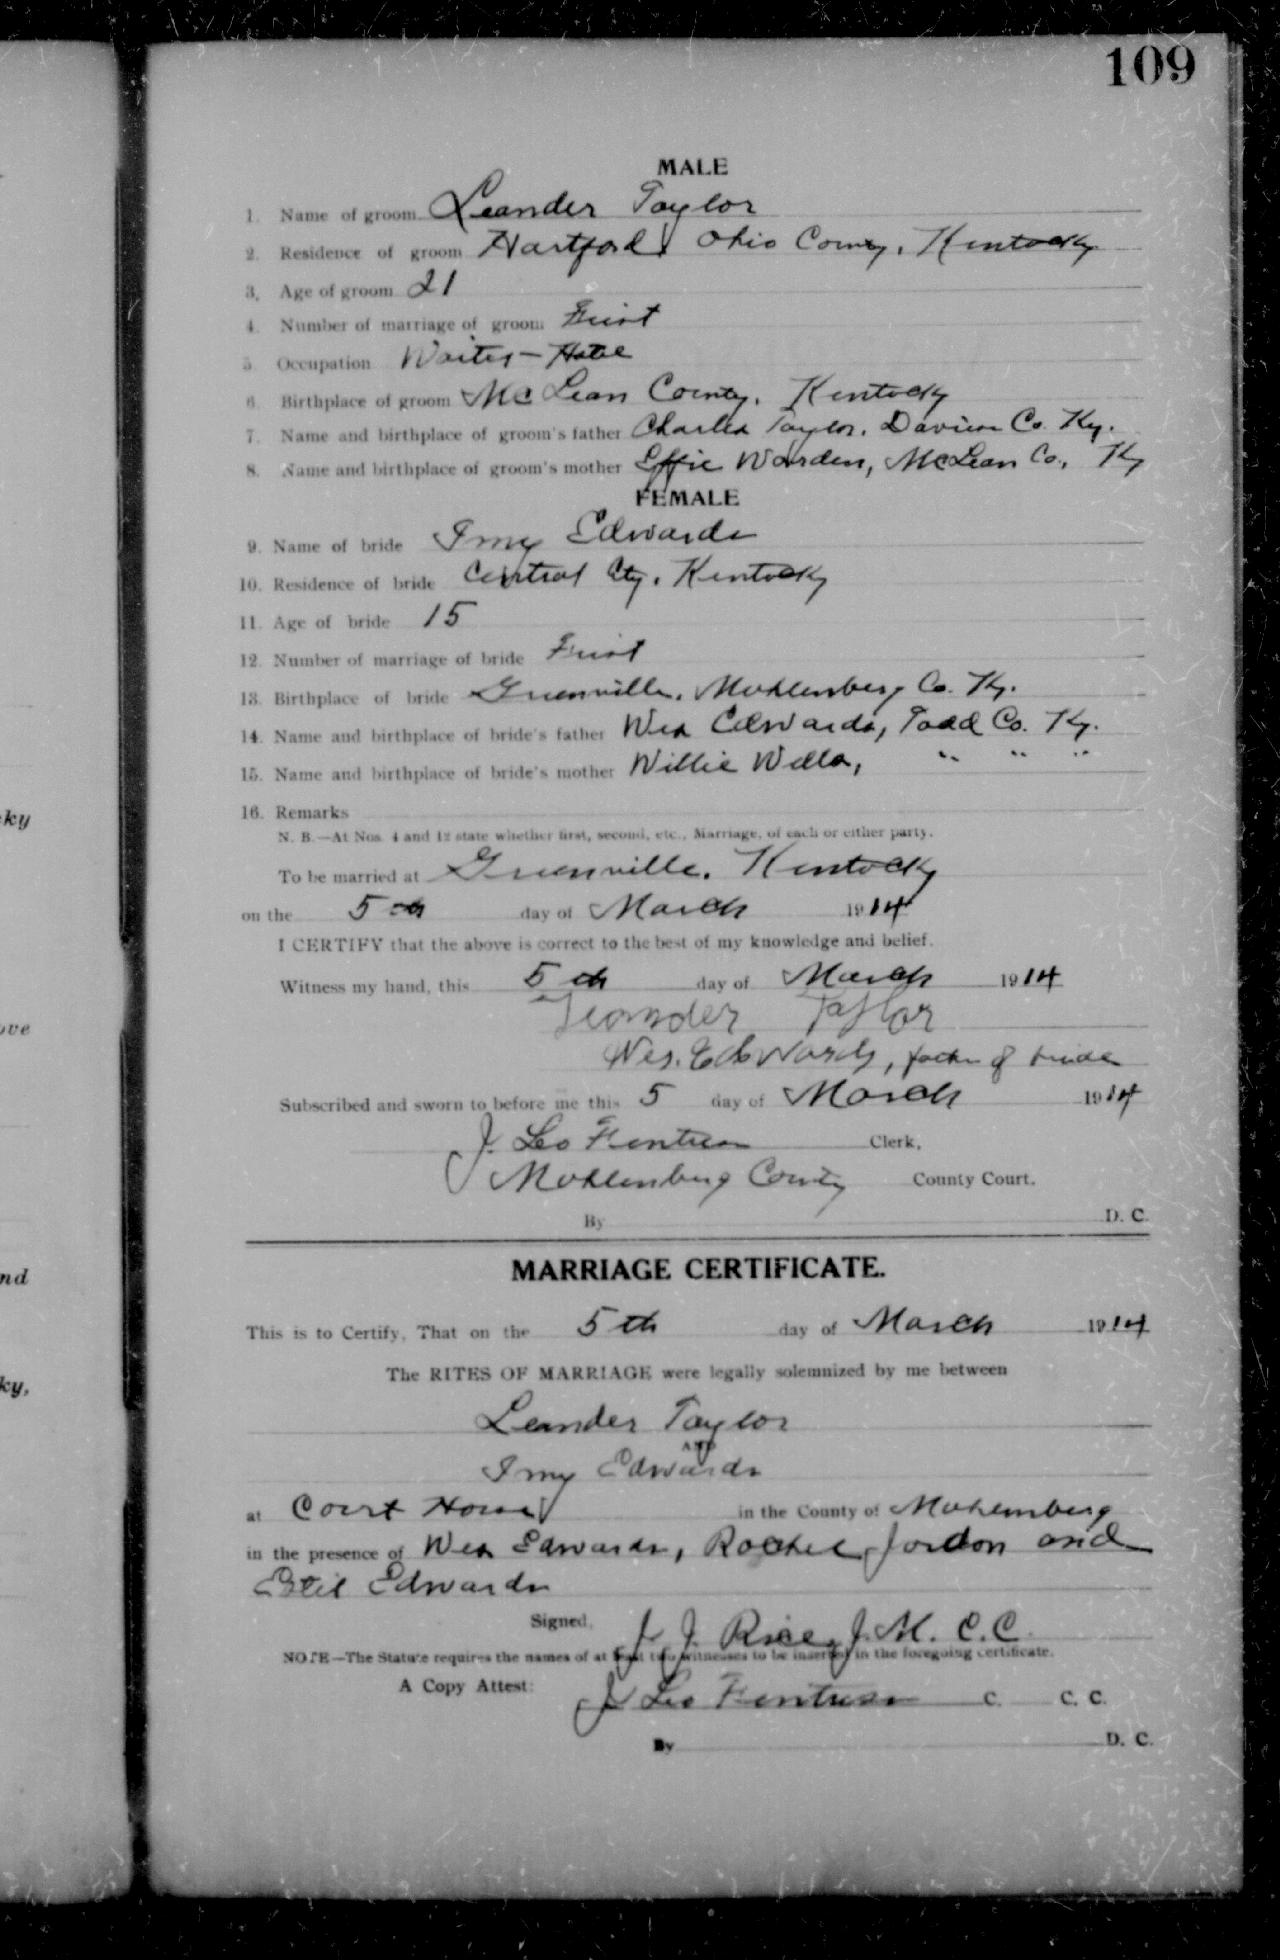 109
MALE
1. Name of groom Leander Taylor
2. Residence of groom Hartford Ohio County, Kentucky
3. Age of groom 21
4. Number of marriage of groom First
5. Occupation Waiter - Hotel
6. Birthplace of groom McLean County, Kentucky
7. Name and birthplace of groom's father Charles Taylor, Daviess Co. Ky.
8. Name and birthplace of groom's mother Effie Worden, McLean Co., Ky
FEMALE
9. Name of bride Imy Edwards
10. Residence of bride Central Cty, Kentucky
11. Age of bride 15
12. Number of marriage of bride First
13. Birthplace of bride Greenville, Muhlenberg Co. Ky.
14. Name and birthplace of bride's father Wes Edwards, Todd Co. Ky.
15. Name and birthplace of bride's mother Willie Wells, " " "
16. Remarks
N. B.—At Nos. 4 and 12 state whether first, second, etc., Marriage, of each or either party.
To be married at Greenville, Kentucky
on the 5th day of March 1914
I CERTIFY that the above is correct to the best of my knowledge and belief.
Witness my hand, this 5th day of March 1914
Leander Taylor
Wes. Edwards, father of bride
Subscribed and sworn to before me this 5 day of March 1914
J. Leo Fentress Clerk,
Muhlenberg County County Court.
By D. C.
MARRIAGE CERTIFICATE.
This is to Certify, That on the 5th day of March 1914
The RITES OF MARRIAGE were legally solemnized by me between
Leander Taylor
AND
Imy Edwards
at Court House in the County of Muhlenberg
in the presence of Wes Edwards, Rachel Jordon and
Estil Edwards
Signed, J. J. Rice, J. M. C. C.
NOTE—The Statute requires the names of at least two witnesses to be inserted in the foregoing certificate.
A Copy Attest: J Leo Fentress C. C. C.
By D. C.
ky
ove
nd
ky,